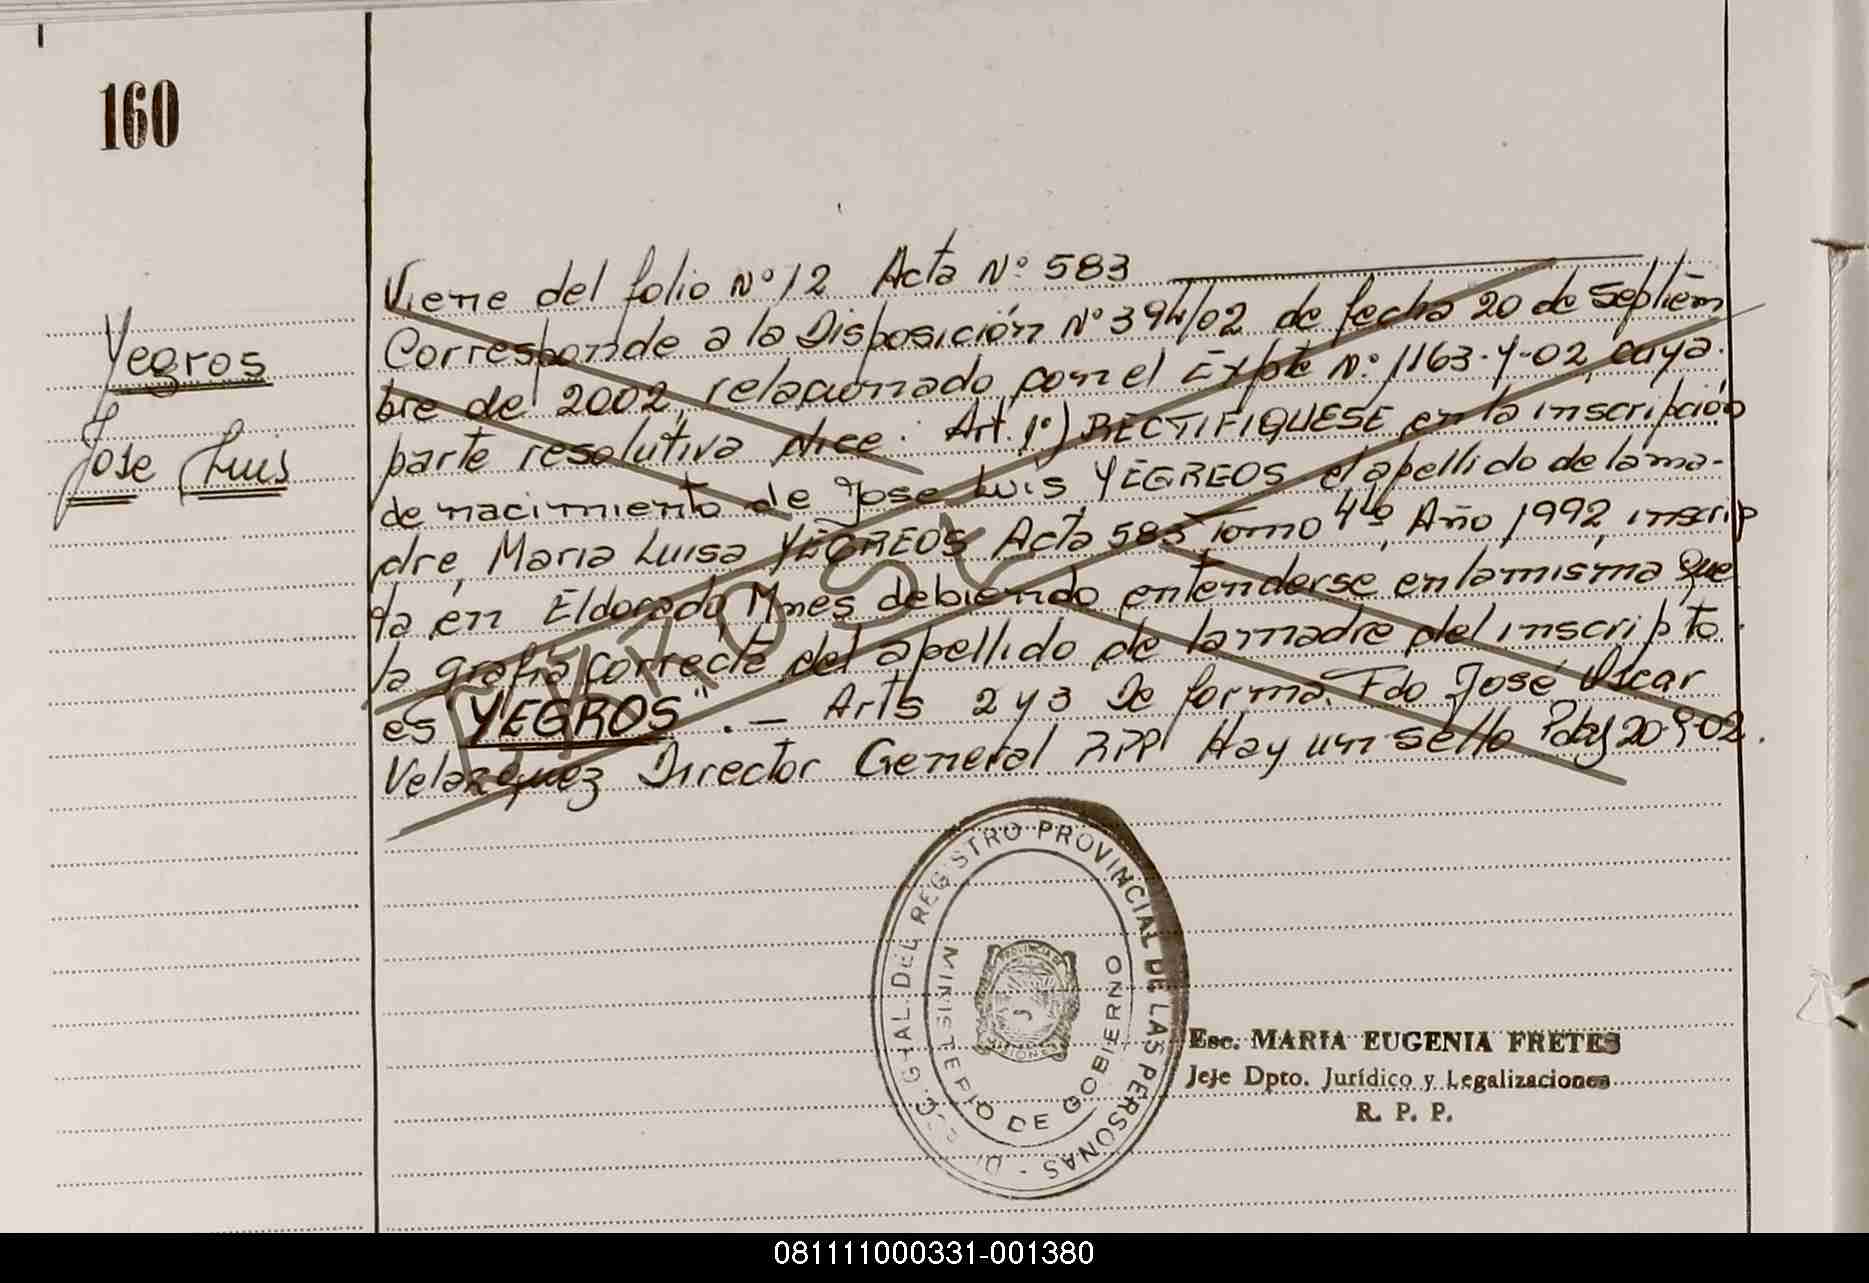 160
Yegros
Jose Luis
Viene del folio Nº 12 Acta Nº 583
Corresponde a la Disposición Nº 394/02 de fecha 20 de Septiem
bre de 2002, relacionado con el Expte Nº 1163-Y-02, cuya
parte resolutiva dice: Art. 1º) RECTIFIQUESE en la inscripción
de nacimiento de Jose Luis YEGREOS el apellido de la ma-
dre, Maria Luisa YEGREOS Acta 583 Tomo 4to, Año 1992, inscrip
ta en Eldorado, Mnes debiendo entenderse en la misma que
la grafia correcta del apellido de la madre del inscripto
es "YEGROS". — Arts 2 y 3 De forma. Fdo José Oscar
Velazquez Director General RPP Hay un sello Pdas 20-9-02.
ERROSE
DIREC. GRAL DEL REGISTRO PROVINCIAL DE LAS PERSONAS -
MINISTERIO DE GOBIERNO
PROVINCIA DE
MISIONES
Esc. MARIA EUGENIA FRETES
Jefe Dpto. Jurídico y Legalizaciones
R. P. P.
081111000331-001380